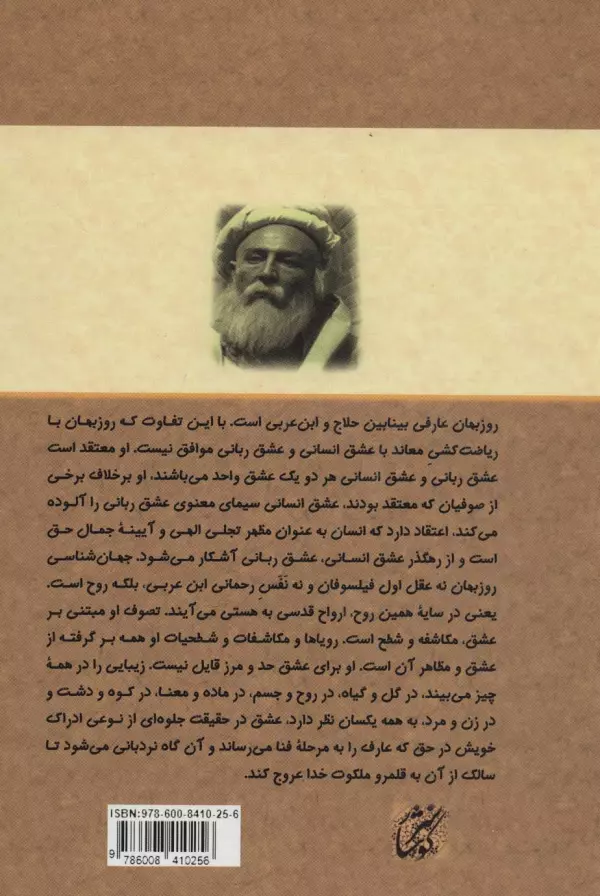 روزبهان عارفی بینابین حلاج و ابن‌عربی است. با این تفاوت که روزبهان با
ریاضت‌کشیِ معاند با عشق انسانی و عشق ربانی موافق نیست. او معتقد است
عشق ربانی و عشق انسانی هر دو یک عشق واحد می‌باشند، او برخلاف برخی
از صوفیان که معتقد بودند، عشق انسانی سیمای معنوی عشق ربانی را آلوده
می‌کند، اعتقاد دارد که انسان به عنوان مظهر تجلی الهی و آیینهٔ جمال حق
است و از رهگذر عشق انسانی، عشق ربانی آشکار می‌شود. جهان‌شناسی
روزبهان نه عقل اول فیلسوفان و نه نَفَسِ رحمانی ابن عربی، بلکه روح است.
یعنی در سایهٔ همین روح، ارواح قدسی به هستی می‌آیند. تصوف او مبتنی بر
عشق، مکاشفه و شطح است. رویاها و مکاشفات و شطحیات او همه بر گرفته از
عشق و مظاهر آن است. او برای عشق حد و مرز قایل نیست. زیبایی را در همهٔ
چیز می‌بیند، در گل و گیاه، در روح و جسم، در ماده و معنا، در کوه و دشت و
در زن و مرد، به همه یکسان نظر دارد، عشق در حقیقت جلوه‌ای از نوعی ادراک
خویش در حق که عارف را به مرحلهٔ فنا می‌رساند و آن گاه نردبانی می‌شود تا
سالک از آن به قلمرو ملکوت خدا عروج کند.
ISBN:978-600-8410-25-6
9 786008 410256